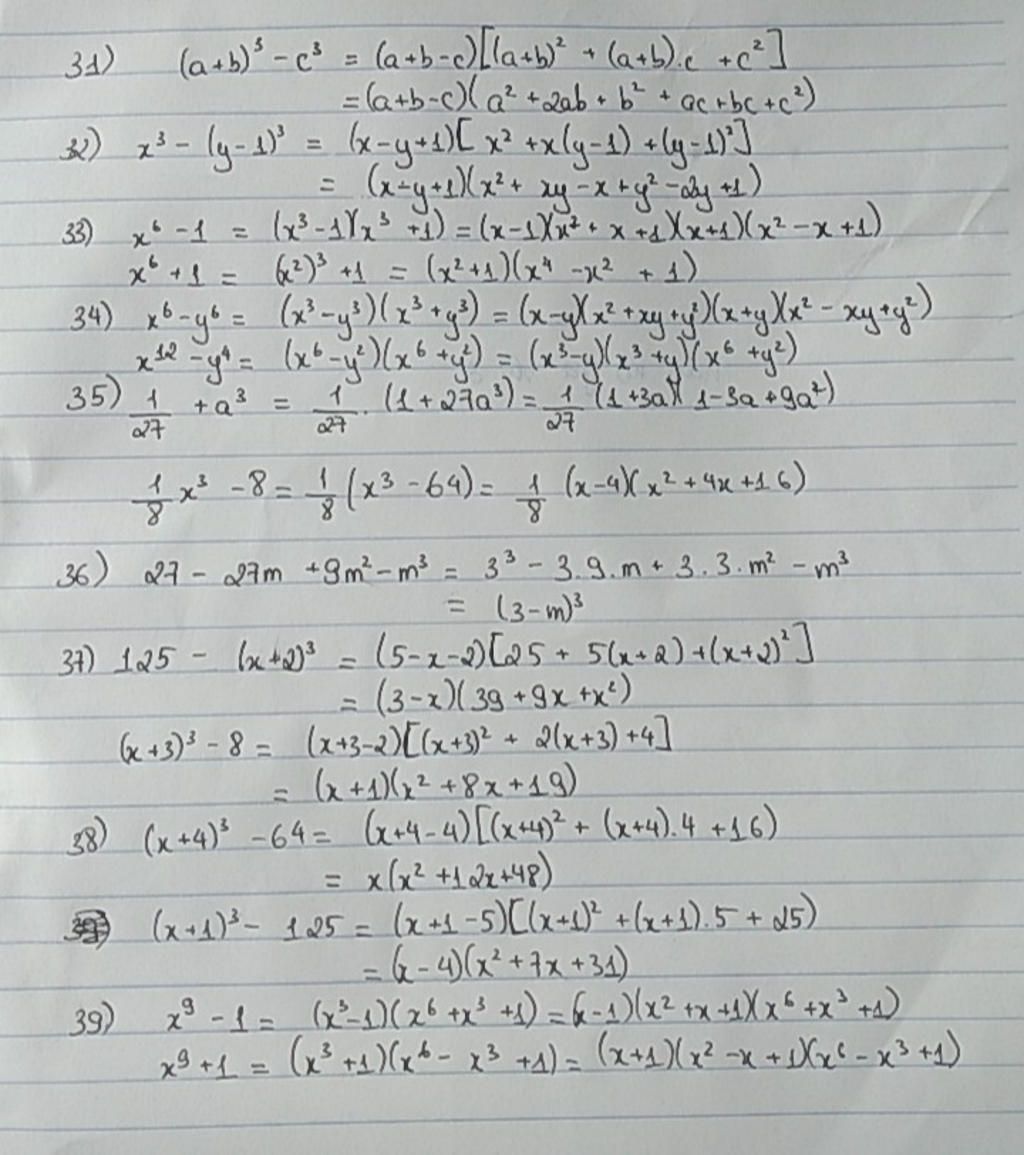 31) (a+b)³ - c³ = (a+b-c)[(a+b)² + (a+b).c + c²]
= (a+b-c)(a² + 2ab + b² + ac + bc + c²)
32) x³ - (y-1)³ = (x-y+1)[x² + x(y-1) + (y-1)²]
= (x-y+1)(x² + xy - x + y² - 2y + 1)
33) x⁶ - 1 = (x³-1)(x³+1) = (x-1)(x² + x + 1)(x+1)(x² - x + 1)
x⁶ + 1 = (x²)³ + 1 = (x²+1)(x⁴ - x² + 1)
34) x⁶ - y⁶ = (x³ - y³)(x³ + y³) = (x-y)(x² + xy + y²)(x+y)(x² - xy + y²)
x¹² - y⁴ = (x⁶ - y²)(x⁶ + y²) = (x³-y)(x³+y)(x⁶ + y²)
35) 1/27 + a³ = 1/27 . (1 + 27a³) = 1/27 (1+3a)(1-3a+9a²)
1/8 x³ - 8 = 1/8 (x³ - 64) = 1/8 (x-4)(x² + 4x + 16)
36) 27 - 27m + 9m² - m³ = 3³ - 3.9.m + 3.3.m² - m³
= (3-m)³
37) 125 - (x+2)³ = (5-x-2)[25 + 5(x+2) + (x+2)²]
= (3-x)(39 + 9x + x²)
(x+3)³ - 8 = (x+3-2)[(x+3)² + 2(x+3) + 4]
= (x+1)(x² + 8x + 19)
38) (x+4)³ - 64 = (x+4-4)[(x+4)² + (x+4).4 + 16)
= x(x² + 12x + 48)
(x+1)³ - 125 = (x+1-5)[(x+1)² + (x+1).5 + 25)
= (x-4)(x² + 7x + 31)
39) x⁹ - 1 = (x³-1)(x⁶ + x³ + 1) = (x-1)(x² + x + 1)(x⁶ + x³ + 1)
x⁹ + 1 = (x³+1)(x⁶ - x³ + 1) = (x+1)(x² - x + 1)(x⁶ - x³ + 1)